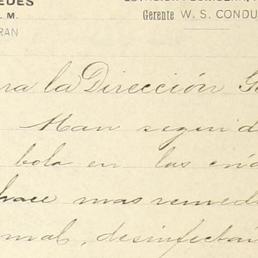 EDES
. M.
RAN
Gerente W. S. CONDU
ra la Dirección G
Han seguid
bola en las
hace mas remed
mal, desinfecta